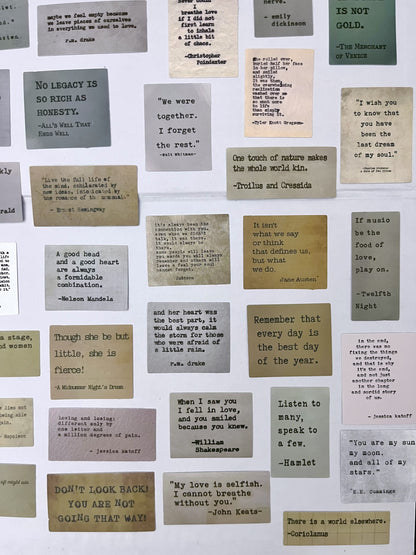 maybe we feel empty because
we leave pieces of ourselves
in everything we used to love.
r.m. drake
breathe
love if I did not
first learn
to inhale
a little bit
of chaos.
-Christopher
Poindexter
nerve.
- emily
dickinson
IS NOT
GOLD.
-THE MERCHANT
OF VENICE
NO LEGACY IS
SO RICH AS
HONESTY.
-ALL'S WELL THAT
ENDS WELL
"We were
together.
I forget
the rest."
-Walt Whitman-
She rolled over,
buried half her face
in her pillow,
and smiled
slightly.
It was then,
the overwhelming
realization
washed over me
that there is
so much more
to life
than simply
surviving it.
-Tyler Knott Gregson-
"I wish you
to know that
you have
been the
last dream
of my soul."
"Live the full life of
the mind, exhilarated by
new ideas, intoxicated by
the romance of the unusual."
- Ernest Hemingway
One touch of nature makes
the whole world kin.
-Troilus and Cressida
A good head
and a good heart
are always
a formidable
combination.
-Nelson Mandela
It isn't
what we say
or think
that defines us,
but what
we do.
Jane Austen
If music
be the
food of
love,
play on.
-Twelfth
Night
Though she be but
little, she is
fierce!
-A Midsummer Night's Dream
and her heart was
the best part, it
would always calm
the storm for those
who were afraid of
a little rain.
r.m. drake
Remember that
every day is
the best day
of the year.
in the end,
there was no
fixing the things
we destroyed,
and that is why
it's the end,
and not just
another chapter
in the long
and sordid story
of us.
- jessica katoff
- Napoleon
loving and losing:
different only by
one letter and
a million degrees of pain.
- jessica katoff
When I saw you
I fell in love,
and you smiled
because you knew.
-William
Shakespeare
Listen to
many,
speak to
a few.
-Hamlet
"You are my sun,
my moon,
and all of my
stars."
-E.E. Cummings
DON'T LOOK BACK!
YOU ARE NOT
GOING THAT WAY!
"My love is selfish.
I cannot breathe
without you."
-John Keats-
There is a world elsewhere.
-Coriolanus